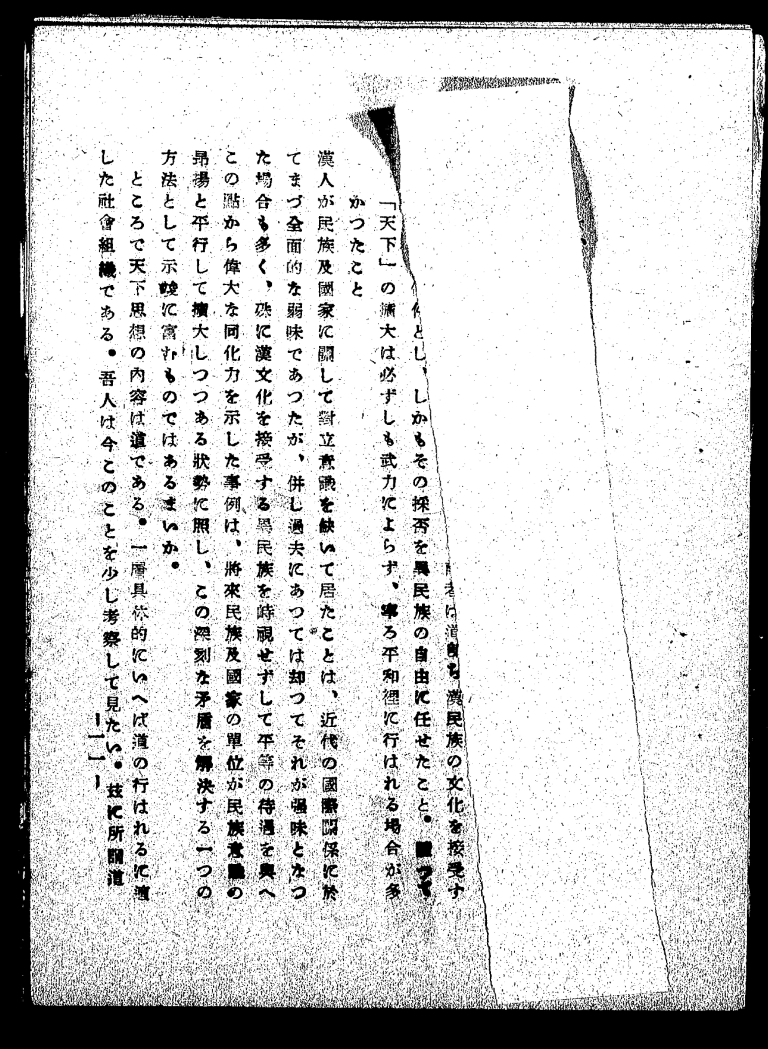 は道 漢民族の文化を接受す
とし、しかもその採否を異民族の自由に任せたこと。
「天下」の擴大は必ずしも武力によらず、寧ろ平和裡に行はれる場合が多
かつたこと
漢人が民族及國家に關して對立意識を缺いて居たことは、近代の國際關係に於
てまづ全面的な弱味であつたが、併し過去にあつては却つてそれが强味となつ
た場合も多く、殊に漢文化を接受する異民族を時視せずして平等の待遇を與へ
この點から偉大な同化力を示した事例は、將來民族及國家の單位が民族意識の
昻揚と平行して擴大しつつある狀勢に照し、この深刻な矛盾を解決する一つの
方法として示唆に富むものではあるまいか。
ところで天下思想の內容は道である。一層具体的にいへば道の行はれるに適
した社會組織である。吾人は今このことを少し考察して見たい。玆に所謂道
—一一—